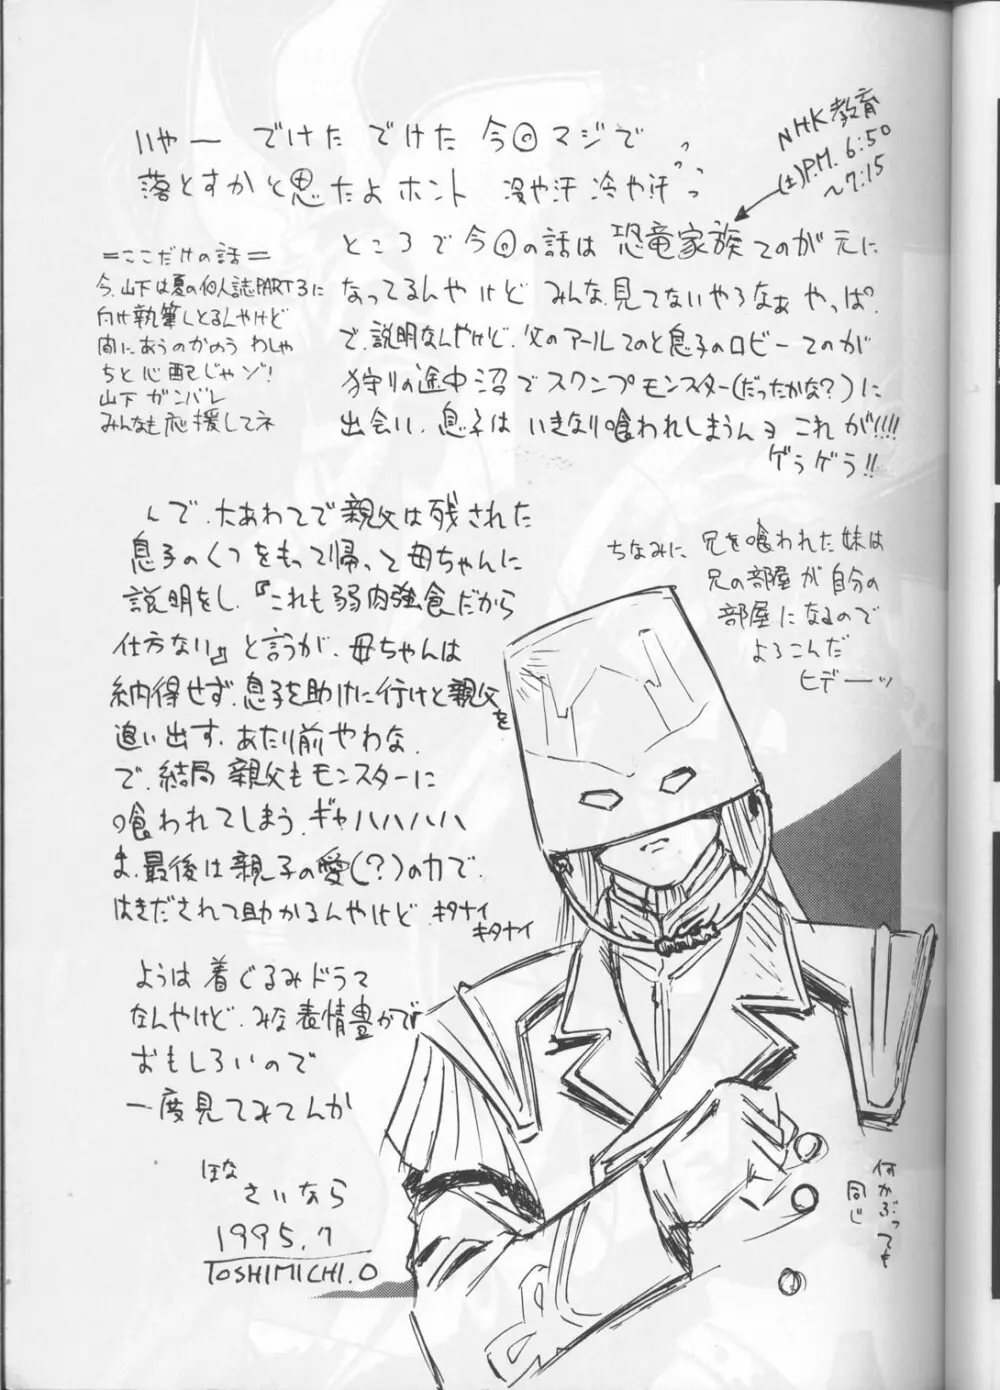 いやー でけた でけた 今回マジで
落とすかと思たよホント 冷や汗 冷や汗
NHK教育
(土)P.M. 6:50
〜7:15
ところで今回の話は 恐竜家族 てのが元に
なってるんやけど みんな見てないやろなぁ やっぱ。
で、説明なんやけど、父のアールてのと息子のロビーてのが
狩りの途中沼でスワンプモンスター(だったかな?)に
出会い、息子は いきなり喰われしまうんョ これが!!!!
ゲラゲラ!!
=ここだけの話=
今、山下は夏の個人誌PART3に
向け執筆しとるんやけど
間にあうのかのう わしゃ
ちと心配じゃゾ!
山下 ガンバレ
みんなも応援してネ
んで、大あわてで親父は残された
息子のくつをもって帰って母ちゃんに
説明をし、『これも弱肉強食だから
仕方ない』と言うが、母ちゃんは
納得せず、息子を助けに行けと親父を
追い出す、あたり前やわな、
で、結局 親父もモンスターに
喰われてしまう、ギャハハハハ
ま、最後は親子の愛(?)の力で、
はきだされて助かるんやけど キタナイ
キタナイ
ちなみに 兄を喰われた妹は
兄の部屋が自分の
部屋になるので
よろこんだ
ヒデーッ
ようは着ぐるみドラマ
なんやけど、みな表情豊かで
おもしろいので
一度見てみてんか
ほな
さいなら
1995.7
TOSHIMICHI.O
何かぶっても
同じ